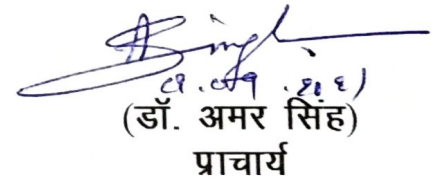 Singh
(डॉ. अमर सिंह)
प्राचार्य